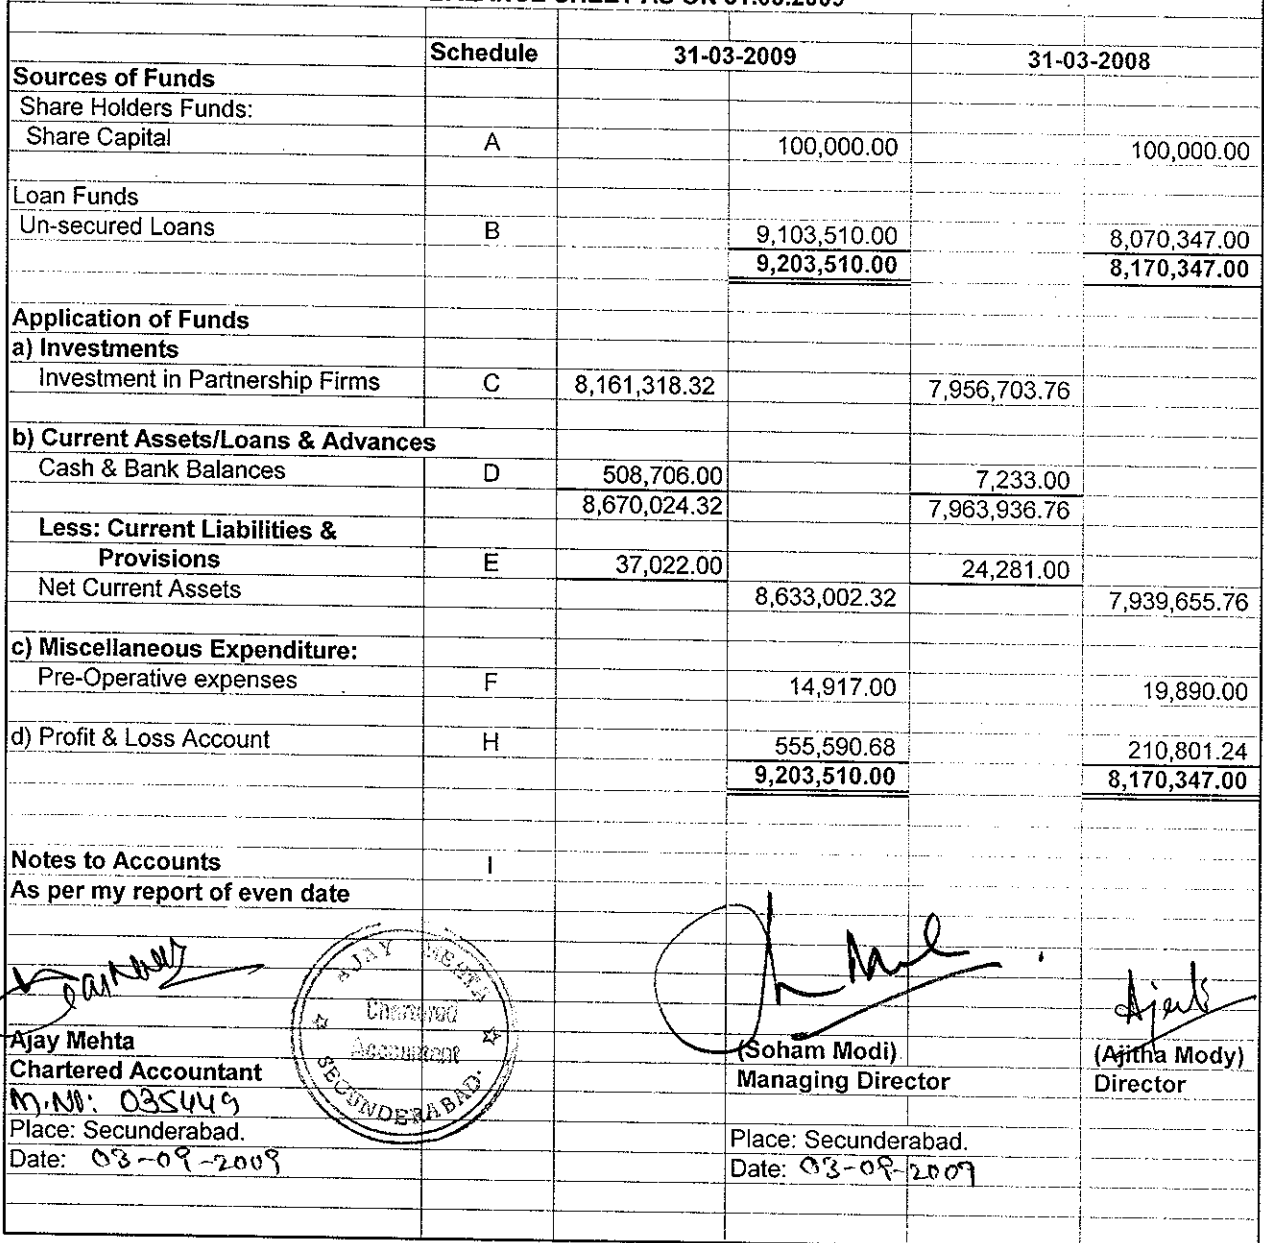 BALANCE SHEET AS ON 31.03.2009
Schedule 31-03-2009 31-03-2008
Sources of Funds
Share Holders Funds:
Share Capital A 100,000.00 100,000.00
Loan Funds
Un-secured Loans B 9,103,510.00 8,070,347.00
9,203,510.00 8,170,347.00
Application of Funds
a) Investments
Investment in Partnership Firms C 8,161,318.32 7,956,703.76
b) Current Assets/Loans & Advances
Cash & Bank Balances D 508,706.00 7,233.00
8,670,024.32 7,963,936.76
Less: Current Liabilities &
Provisions E 37,022.00 24,281.00
Net Current Assets 8,633,002.32 7,939,655.76
c) Miscellaneous Expenditure:
Pre-Operative expenses F 14,917.00 19,890.00
d) Profit & Loss Account H 555,590.68 210,801.24
9,203,510.00 8,170,347.00
Notes to Accounts I
As per my report of even date
AJAY MEHTA
Chartered
Accountant
SECUNDERABAD.
Ajay Mehta (Soham Modi) (Ajitha Mody)
Chartered Accountant Managing Director Director
M.No: 035449
Place: Secunderabad. Place: Secunderabad.
Date: 03-09-2009 Date: 03-09-2009